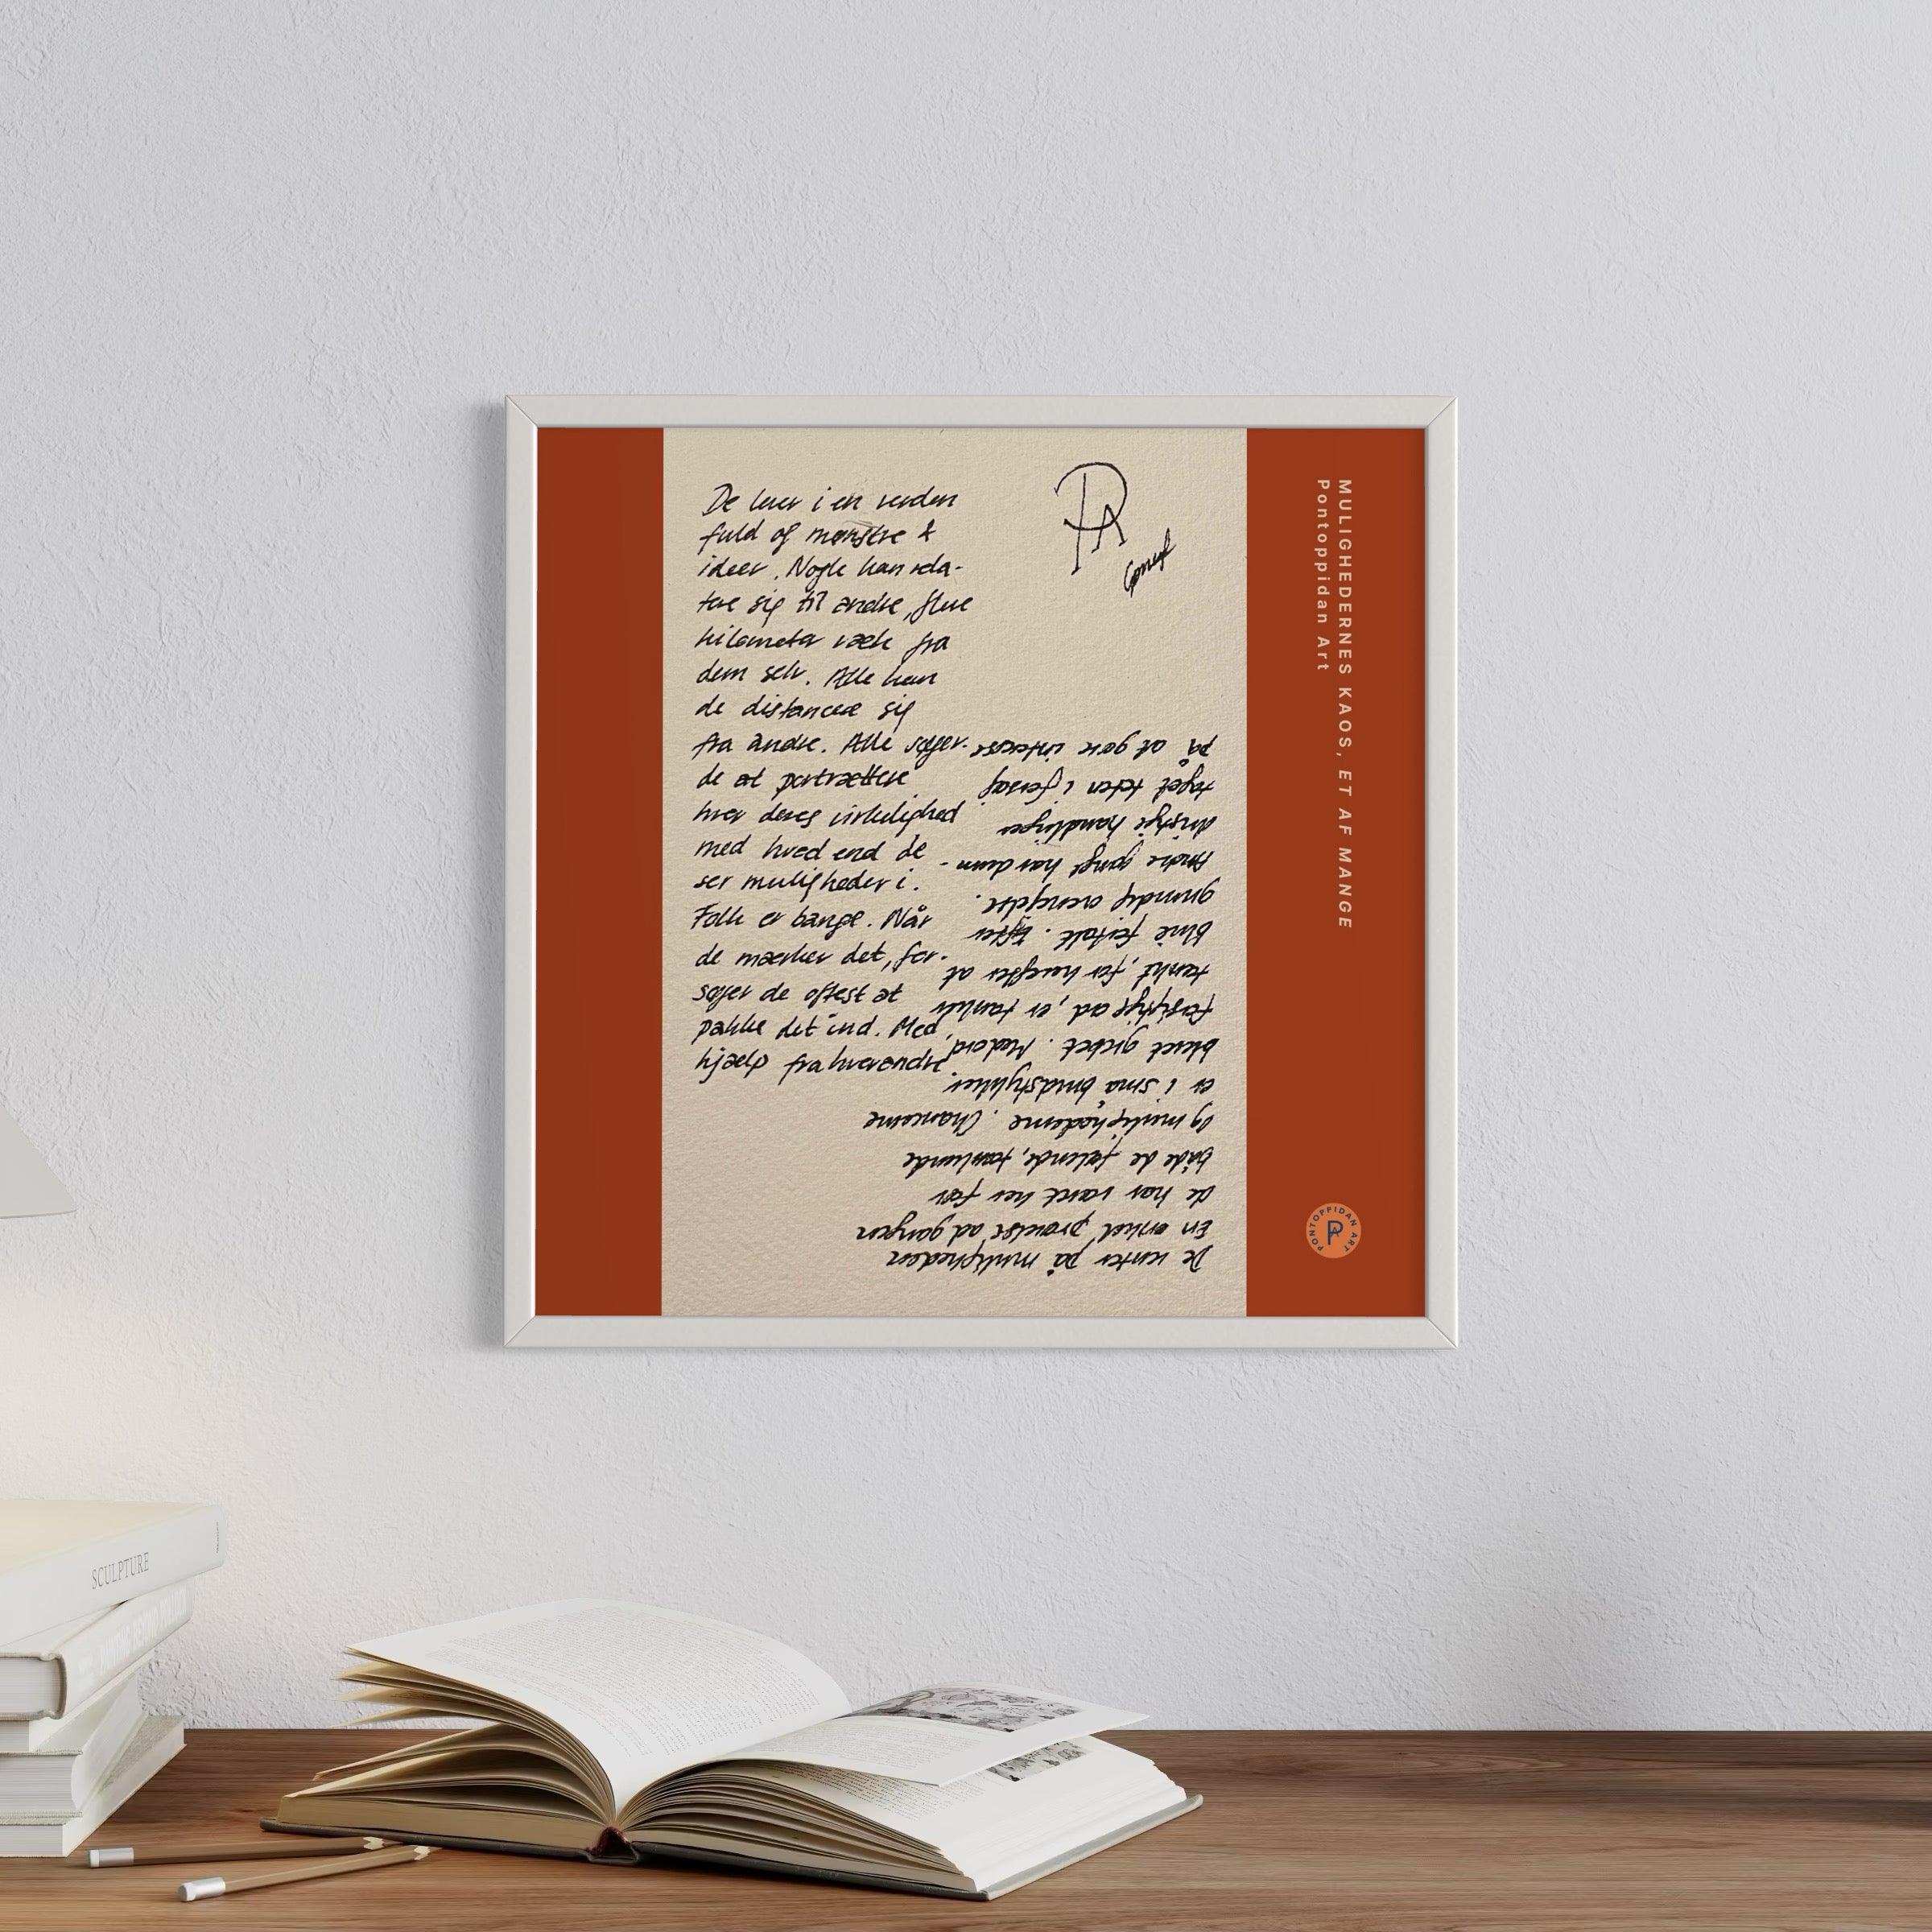 De lever i en verden
fuld af mønstre &
ideer. Nogle kan rela-
tere sig til andre, flere
kilometer væk fra
dem selv. Alle kan
de distancere sig
fra andre. Alle søger
de at portrættere
hver deres virkelighed
med hvad end de
ser muligheder i.
Folk er bange. Når
de mærker det, for-
søger de oftest at
pakke det ind. Med
hjælp fra hverandre.
De venter på muligheden
En enkel prøvelse ad gangen
de har været her før
både de følende, tænkende
og mulighederne. Chancerne
er i små brudstykker
blevet grebet. Modord
forsigtige ad, er tanken
tænkt, for herefter at
blive fortalt. Efter
grundig overvejelse.
Andre gange har dumm-
dristige handlinger
taget teten i forsøg
på at gøre interesse
PA
MULIGHEDERNES KAOS, ET AF MANGE
Pontoppidan Art
PONTOPPIDAN ART
PA
SCULPTURE